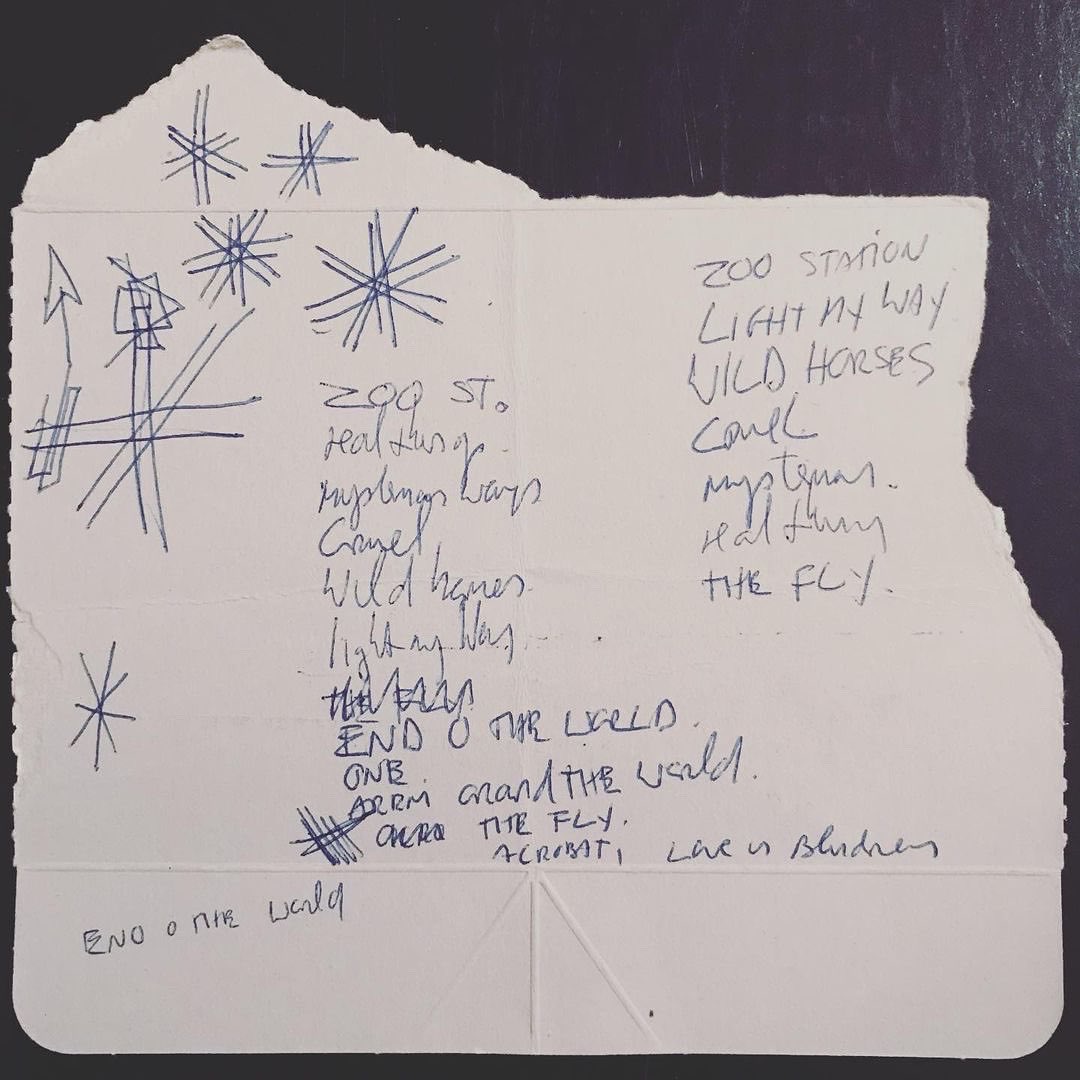 ZOO ST.
real thing.
mysterious ways
Cruel
Wild horses.
light my Way.
END O THE WORLD.
ONE.
ARRM around THE World.
THE FLY.
ACROBAT, Love is Blindness
END O THE World
ZOO STATION
LIGHT MY WAY
WILD HORSES
CRUEL
mysterious.
real thing
THE FLY.